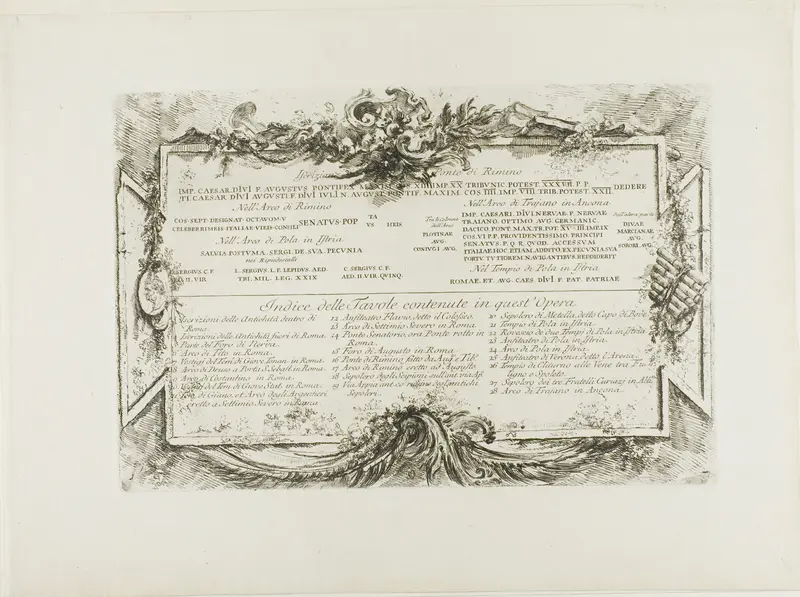 Iscrizioni Ponte di Rimino
IMP. CAESAR. DIVI F. AVGVSTVS PONTIFEX MAXIM. COS XIII IMP. XX. TRIBVNIC. POTEST. XXXVII. P. P.
TI. CAESAR DIVI AVGVSTI. F DIVI IVLI. N. AVGVST. PONTIF. MAXIM. COS IIII. IMP. VIII. TRIB. POTEST. XXII
DEDERE
Nell'Arco di Rimino
COS. SEPT. DESIGNAT. OCTAVOM. V
CELEBERRIMEIS ITALIAE VIEIS CONSILI
SENATVS POP
TA
VS HEIS
Nell'Arco di Pola in Istria
SALVIA POSTVMA. SERGI. DE. SVA. PECVNIA
nei Piedestalli
L. SERGIVS C. F
AED. II. VIR
L. SERGIVS. L. F. LEPIDVS. AED.
TRI. MIL. LEG. XXIX
C. SERGIVS C. F.
AED. II. VIR. QVINQ.
Nell'Arco di Trajano in Ancona
dell'Arco
PLOTINAE
AVG.
CONIVGI AVG.
IMP. CAESARI. DIVI. NERVAE. F. NERVAE
TRAIANO. OPTIMO. AVG. GERMANIC.
DACICO. PONT. MAX. TR. POT. XVIIII. IMP. IX
COS. VI. P. P. PROVIDENTISSIMO. PRINCIPI
SENATVS. P. Q. R. QVOD. ACCESSVM
ITALIAE. HOC. ETIAM. ADDITO. EX. PECVNIA. SVA
PORTV. TVTIOREM. NAVIGANTIBVS. REDDIDERIT
DIVAE
MARCIANAE
AVG.
SORORI. AVG.
Nel Tempio di Pola in Istria
ROMAE. ET. AVG. CAES DIVI F. PAT. PATRIAE
Indice delle Tavole contenute in quest' Opera
Iscrizioni delle Antichità dentro di
Roma.
Iscrizioni delle Antichità fuori di Roma.
Parte del Foro di Nerva.
Arco di Tito in Roma.
Vestigj del Tem. di Giove Tonan. in Roma
Arco di Druso a Porta S. Sebast. in Roma.
Arco di Costantino in Roma.
del Tem. di Giove Stat. in Roma.
Tem. di Giano, et Arco degli Argentieri
eretto a Settimio Severo in Roma
12 Anfiteatro Flavio, detto il Colosseo.
13 Arco di Settimio Severo in Roma
14 Ponte Senatorio, ora Ponte rotto in
Roma.
15 Foro di Augusto in Roma
16 Ponte di Rimino fatto da Aug. e Tib.
17 Arco di Rimino eretto ad Augusto
18 Sepolcro degli Scipioni
19 Via Appia antica
Sepolcri.
20 Sepolcro di Metella, detto Capo di Bove.
21 Tempio di Pola in Istria.
22 Rovescio de due Tempj di Pola in Istria
23 Anfiteatro di Pola in Istria.
24 Arco di Pola in Istria.
25 Anfiteatro di Verona detto l'Arena.
26 Tempio di Clitunno alle Vene tra Fu
ligno e Spoleto.
27 Sepolcro dei tre Fratelli Curiazj in Alb.
28 Arco di Trajano in Ancona.